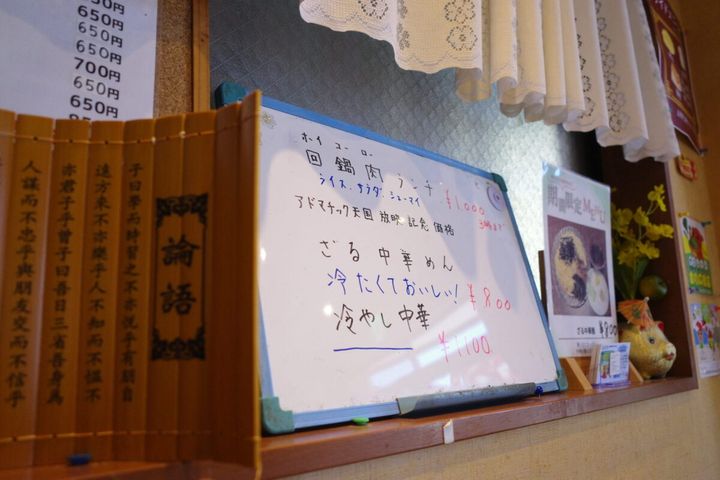 650円
650円
650円
700円
650円
650円
論語
子曰學而時習之不亦說乎有朋自
遠方來不亦樂乎人不知而不慍不
亦君子乎曾子曰吾日三省吾身為
人謀而不忠乎與朋友交而不信乎
ホイ コー ロー
回鍋肉ランチ ¥1,000
ライス、サラダ、シューマイ
アドマチック天国 放映 記念 価格
ざる中華めん
冷たくておいしい! ¥800
冷やし中華
¥1100
期間限定Menu
ざる中華麺 ¥800